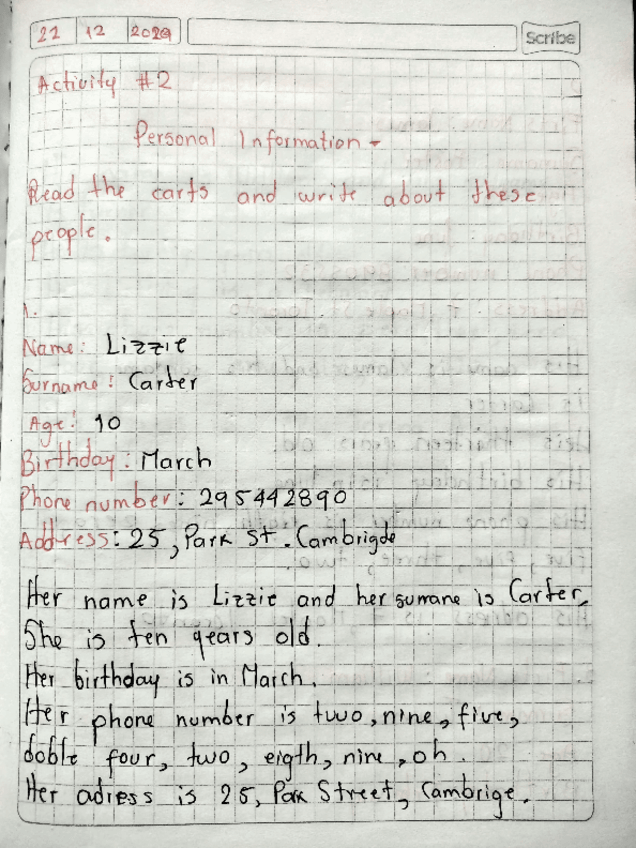 22 12 2020
Scribe
Activity #2
Personal Information -
Read the carts and write about these
people.
1.
Name: Lizzie
Surname: Carter
Age: 10
Birthday: March
Phone number: 295442890
Address: 25, Park St. Cambrigde
Her name is Lizzie and her sumane is Carter.
She is ten years old.
Her birthday is in March.
Her phone number is twuo, nine, five,
doble four, two, eigth, nine, oh.
Her adress is 25, Park Street, Cambrige.